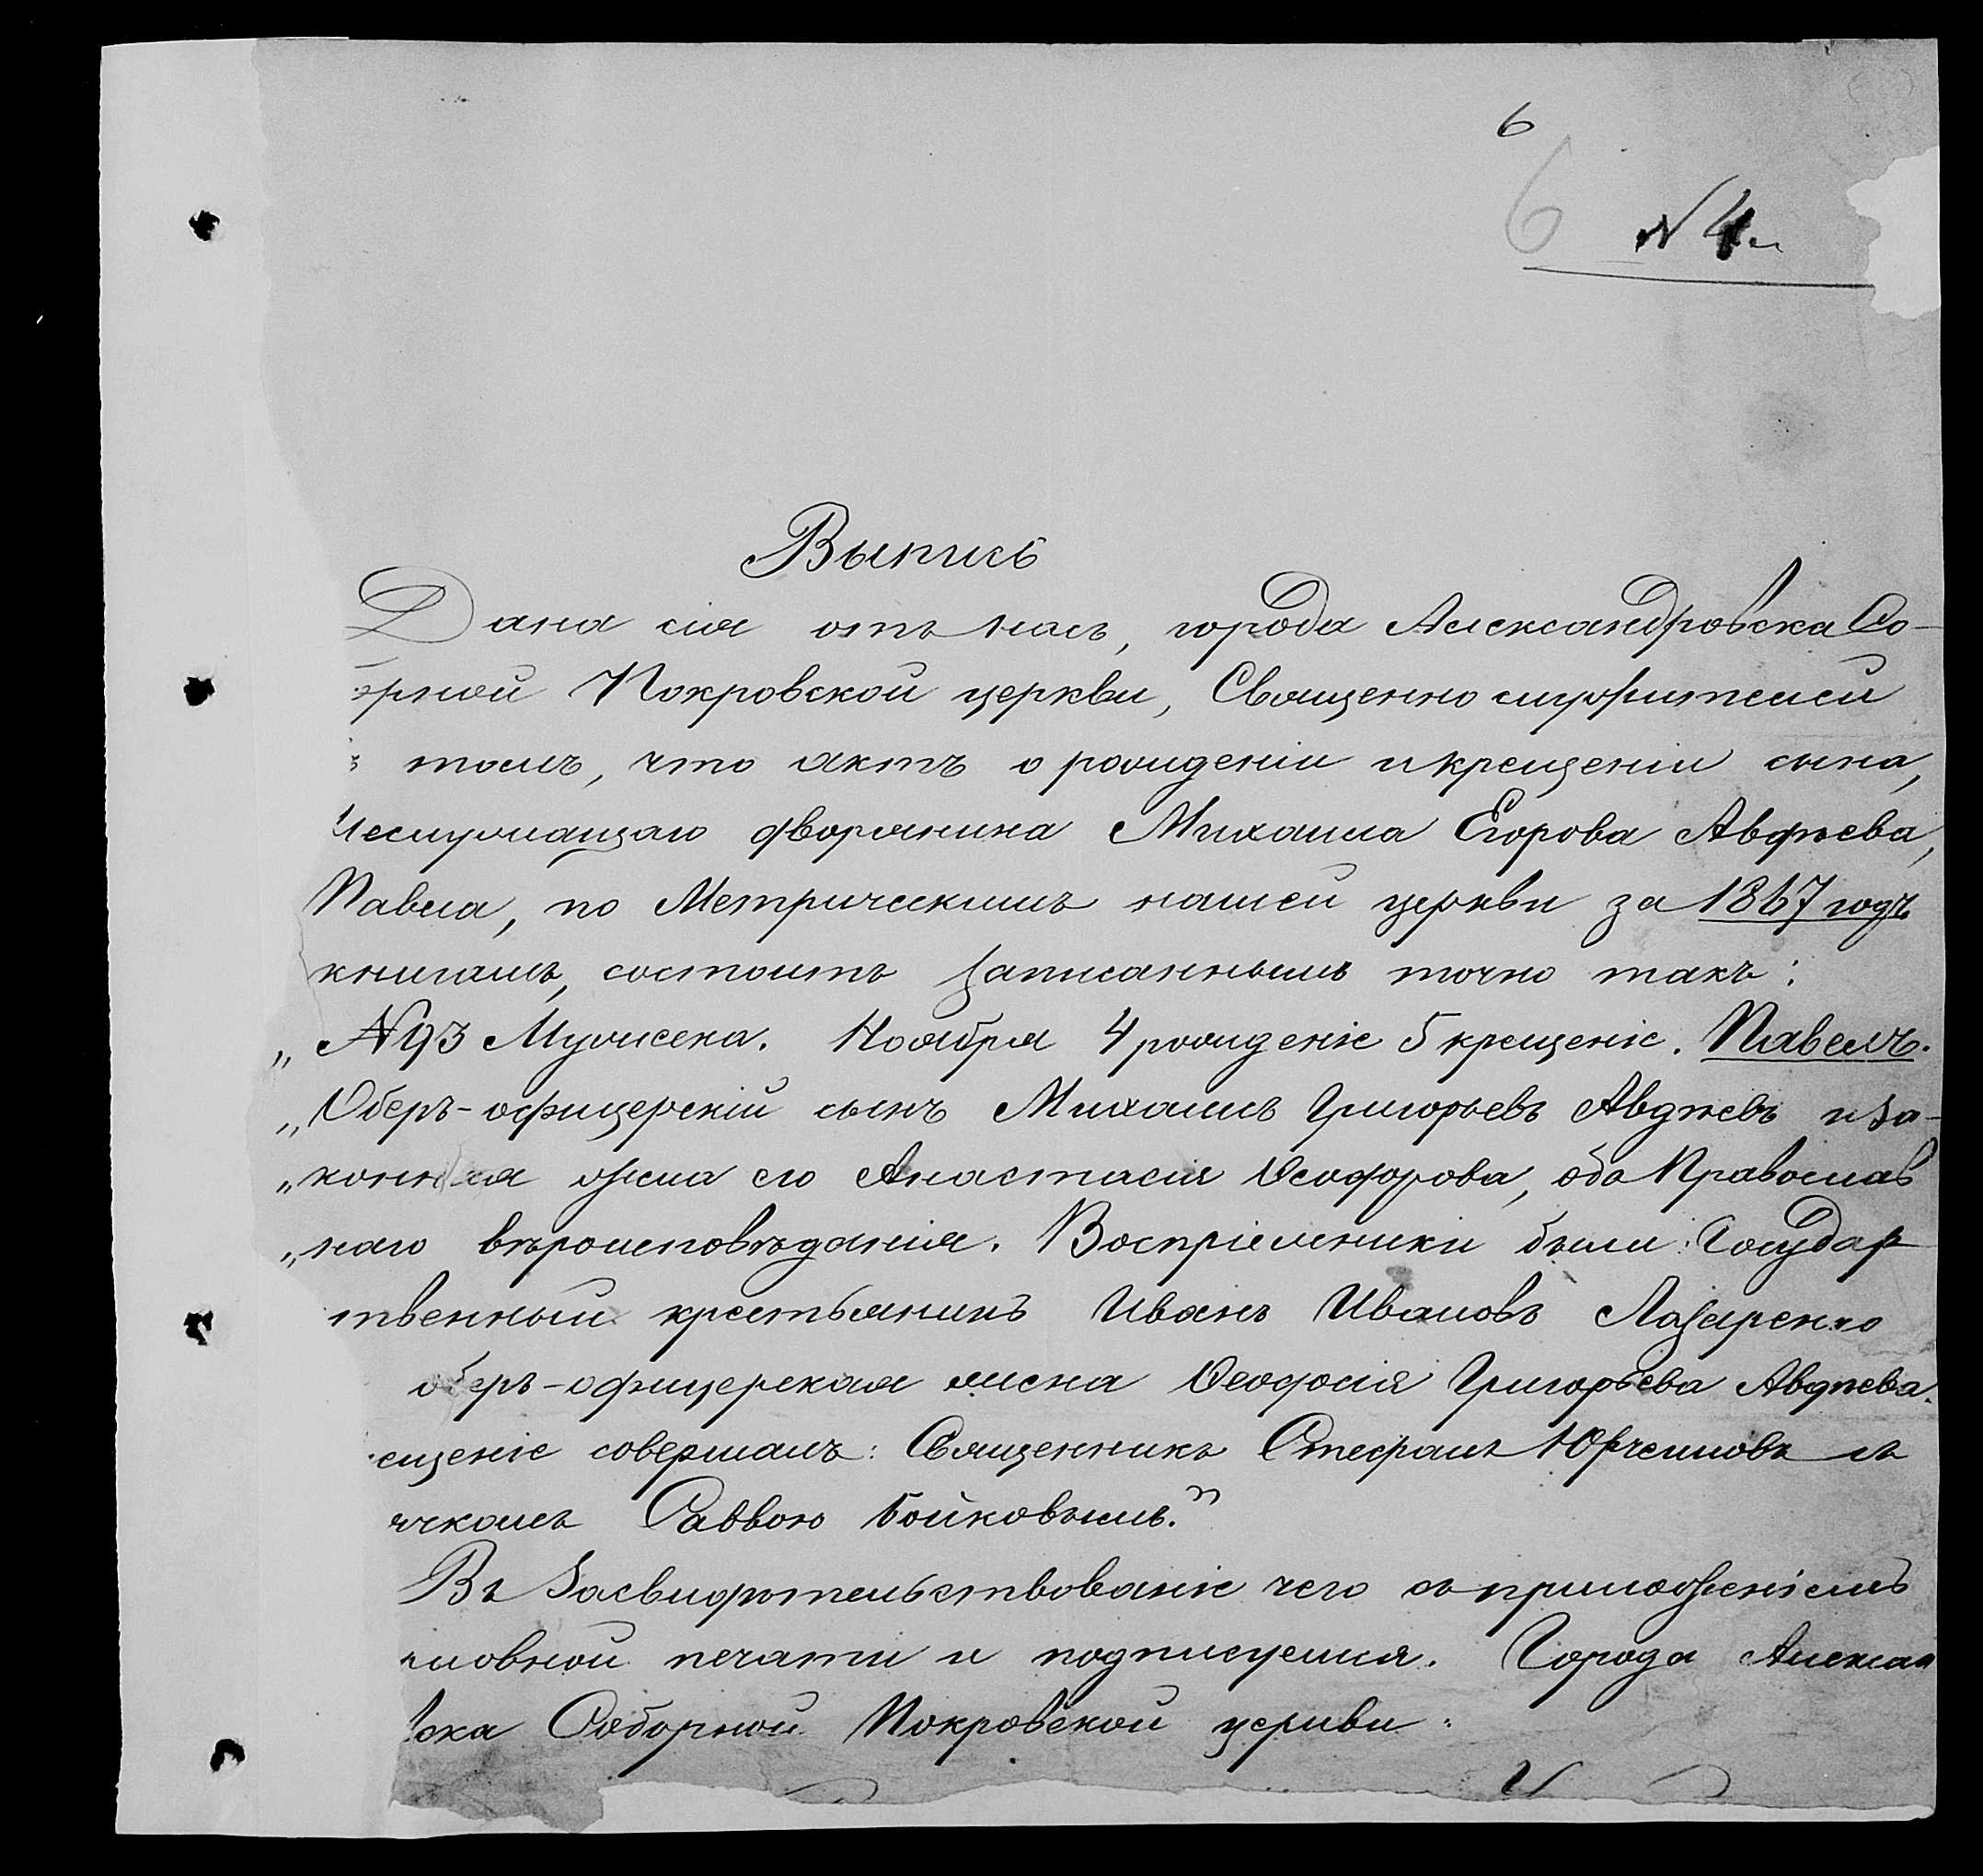 6
6 № 4й
Выпись
Дана сія отъ насъ, города Александровска Со-
орной Покровской церкви, Священно служителей
томъ, что актъ о рожденіи и крещеніи сына,
Неслужащаго дворянина Михаила Егорова Авдѣева,
Павла, по Метрическимъ нашей церкви за 1867 годъ
книгамъ, состоитъ записаннымъ точно такъ:
„ № 93 Мужеска. Ноября 4 рожденіе 5 крещеніе. Павелъ.
„ Оберъ-офицерскій сынъ Михаилъ Григорьевъ Авдѣевъ и за-
„ конная жена его Анастасія Ѳеодорова, оба Православ
„ наго вѣроисповѣданія. Воспріемники были: Государ
твенный крестьянинъ Иванъ Ивановъ Лазаренко
оберъ-офицерская жена Ѳеодосія Григорьева Авдѣева.
ещеніе совершалъ: Священникъ Стефанъ съ
ячкомъ Саввою Бойковымъ."
Въ Засвидѣтельствованіе чего съ приложеніемъ
ковной печати и подписуемся. Города Алексан
вска Соборной Покровской церкви: